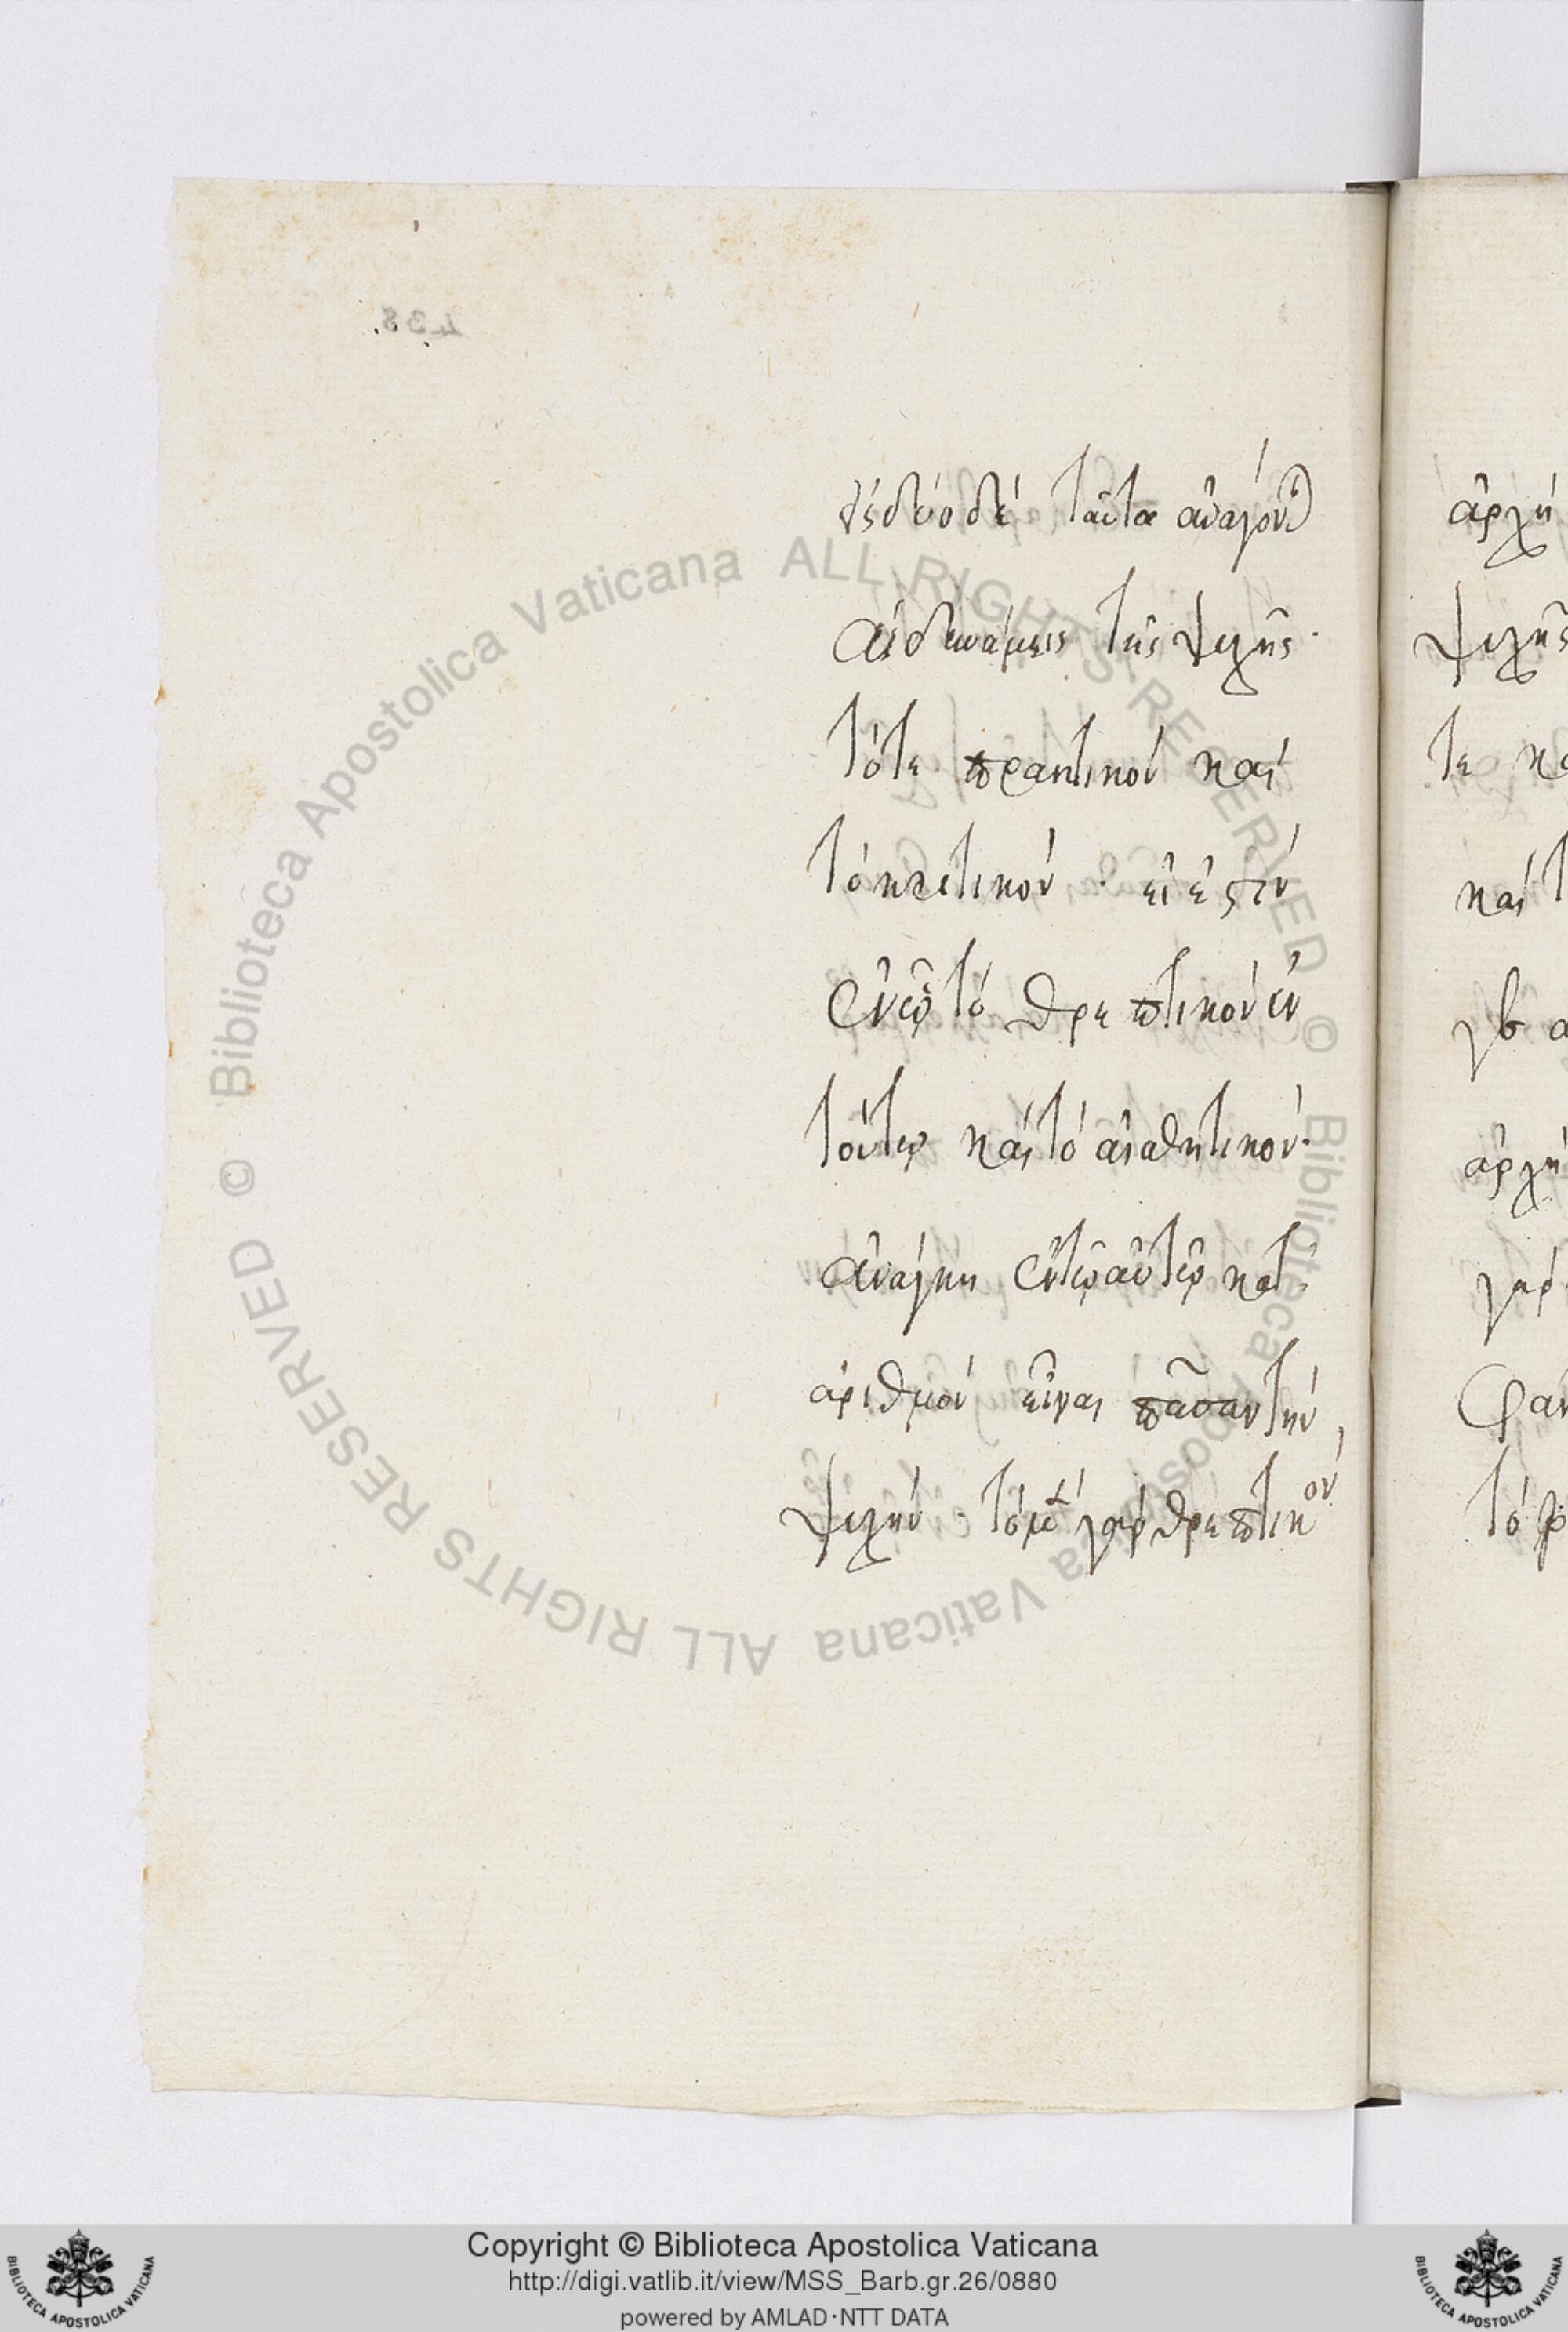 εἰς δύο δὲ ταῦτα ἀνάγονται
αἱ δυνάμεις τῆς ψυχῆς·
τό τε πρακτικὸν καὶ
τὸ κριτικόν · εἰ ἐστὶν
ἐν ᾧ τὸ θρεπτικὸν ἐν
τούτῳ καὶ τὸ αἰσθητικόν·
ἀνάγκη ἐν τῷ αὐτῷ κατ'
ἀριθμὸν εἶναι πᾶσαν τὴν
ψυχήν · τὸ μὲν γὰρ θρεπτικὸν
ἀρχὴ
ψυχῆς
τε κα
καὶ τ
ἀρχὴ
γὰρ
φαν
438.
© Biblioteca Apostolica Vaticana ALL RIGHTS RESERVED © Biblioteca Apostolica Vaticana ALL RIGHTS RESERVED
Copyright © Biblioteca Apostolica Vaticana
http://digi.vatlib.it/view/MSS_Barb.gr.26/0880
powered by AMLAD·NTT DATA
BIBLIOTECA APOSTOLICA VATICANA
BIBLIOTECA APOSTOLICA VATICANA